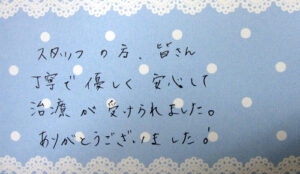 スタッフの方、皆さん
丁寧で優しく安心して
治療が受けられました。
ありがとうございました!